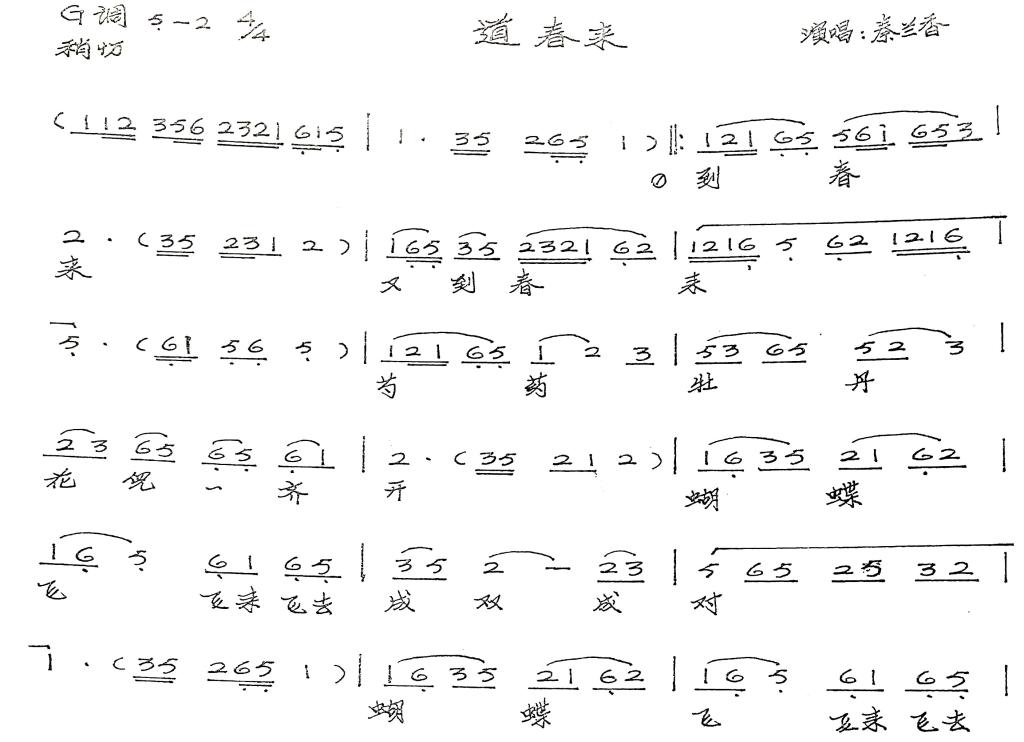 G调 5-2 4/4 道春来 演唱:秦兰香
稍切
(112 356 2321 615 | 1· 35 265 1) ‖: 121 65 561 653 |
到 春
2·(35 231 2) | 165 35 2321 62 | 1216 5 62 1216 |
来 又 到 春 来
5·(61 56 5) | 121 65 1 2 3 | 53 65 52 3 |
芍 药 牡 丹
23 65 65 61 | 2·(35 21 2) | 16 35 21 62 |
花 一 齐 开 蝴 蝶
16 5 61 65 | 35 2 - 23 | 5 65 25 32 |
飞 飞来 飞去 成 双 成 对
1·(35 265 1) | 16 35 21 62 | 16 5 61 65 |
蝴 蝶 飞 飞来 飞去